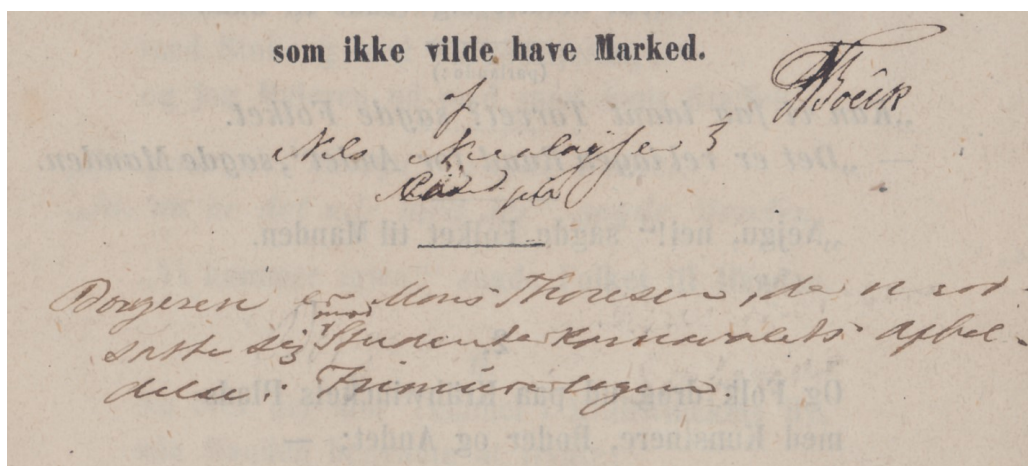 som ikke vilde have Marked.
af
Nils Nicolaysen
Borgeren er Mons Thoresen, der
satte sig mod Studenterkarnevalets Afbil-
delse i Frimurerlogen.